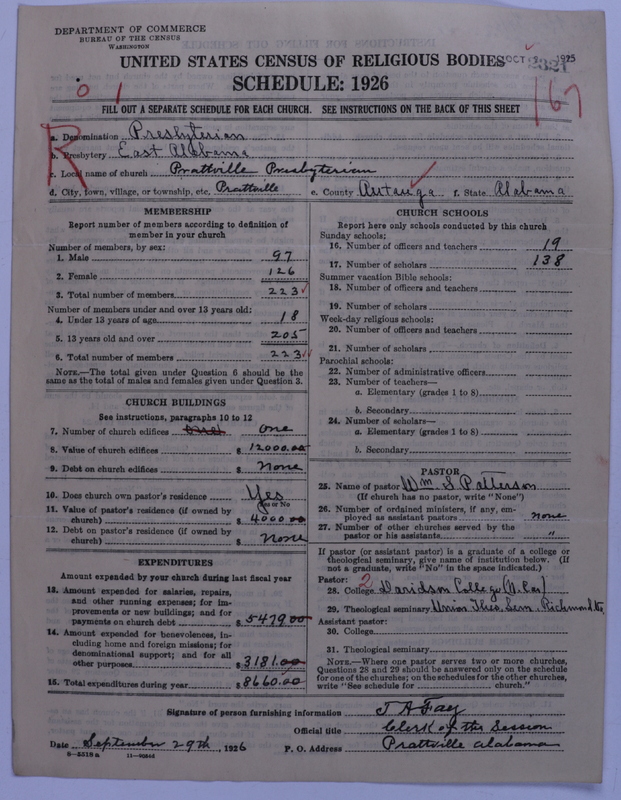 DEPARTMENT OF COMMERCE
BUREAU OF THE CENSUS
WASHINGTON
UNITED STATES CENSUS OF RELIGIOUS BODIES
OCT 1925
SCHEDULE: 1926
0 1
167
FILL OUT A SEPARATE SCHEDULE FOR EACH CHURCH. SEE INSTRUCTIONS ON THE BACK OF THIS SHEET
R
a. Denomination Presbyterian
b. Presbytery East Alabama
c. Local name of church Prattville Presbyterian
d. City, town, village, or township, etc. Prattville e. County Autauga f. State Alabama
MEMBERSHIP
Report number of members according to definition of
member in your church
Number of members, by sex:
1. Male 97
2. Female 126
3. Total number of members 223
Number of members under and over 13 years old:
4. Under 13 years of age 18
5. 13 years old and over 205
6. Total number of members 223
NOTE.—The total given under Question 6 should be
same as the total of males and females given under Question 3.
CHURCH BUILDINGS
See instructions, paragraphs 10 to 12
7. Number of church edifices one
8. Value of church edifices $ 12000.00
9. Debt on church edifices $ none
10. Does church own pastor's residence Yes
Yes or No
11. Value of pastor's residence (if owned by
church) $ 4000.00
12. Debt on pastor's residence (if owned by
church) $ none
EXPENDITURES
Amount expended by your church during last fiscal year
13. Amount expended for salaries, repairs,
and other running expenses; for im-
provements or new buildings; and for
payments on church debt $ 5479.00
14. Amount expended for benevolences, in-
cluding home and foreign missions; for
denominational support; and for all
other purposes $ 3181.00
15. Total expenditures during year $ 8660.00
CHURCH SCHOOLS
Report here only schools conducted by this church
Sunday schools:
16. Number of officers and teachers 19
17. Number of scholars 138
Summer vacation Bible schools:
18. Number of officers and teachers
19. Number of scholars
Week-day religious schools:
20. Number of officers and teachers
21. Number of scholars
Parochial schools:
22. Number of administrative officers
23. Number of teachers—
a. Elementary (grades 1 to 8)
b. Secondary
24. Number of scholars—
a. Elementary (grades 1 to 8)
b. Secondary
PASTOR
25. Name of pastor Wm. S Patterson
(If church has no pastor, write "None")
26. Number of ordained ministers, if any, em-
ployed as assistant pastors none
27. Number of other churches served by the
pastor or his assistants "
If pastor (or assistant pastor) is a graduate of a college or
theological seminary, give name of institution below. (If
not a graduate, write "No" in the space indicated.)
Pastor: 2
28. College Davidson College
29. Theological seminary Union Theo. Sem. Richmond Va.
Assistant pastor:
30. College
31. Theological seminary
NOTE.—Where one pastor serves two or more churches,
Questions 28 and 29 should be answered only on the schedule
for one of the churches; on the schedules for the other churches,
write "See schedule for church."
Signature of person furnishing information J A Fay
Official title Clerk of the Session
Date September 29th, 1926 P. O. Address Prattville Alabama